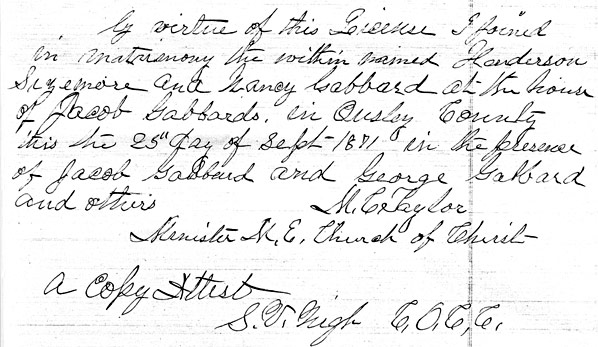 By virtue of this License I joined
in matrimony the within named Henderson
Sizemore and Nancy Gabbard at the house
of Jacob Gabbards. in Ousley County
this the 25" Day of Sept 1871 in the presence
of Jacob Gabbard and George Gabbard
and others M. C. Taylor
Minister M. E. Church of Christ
A Copy Attest
S. V. High C. O. C. C.